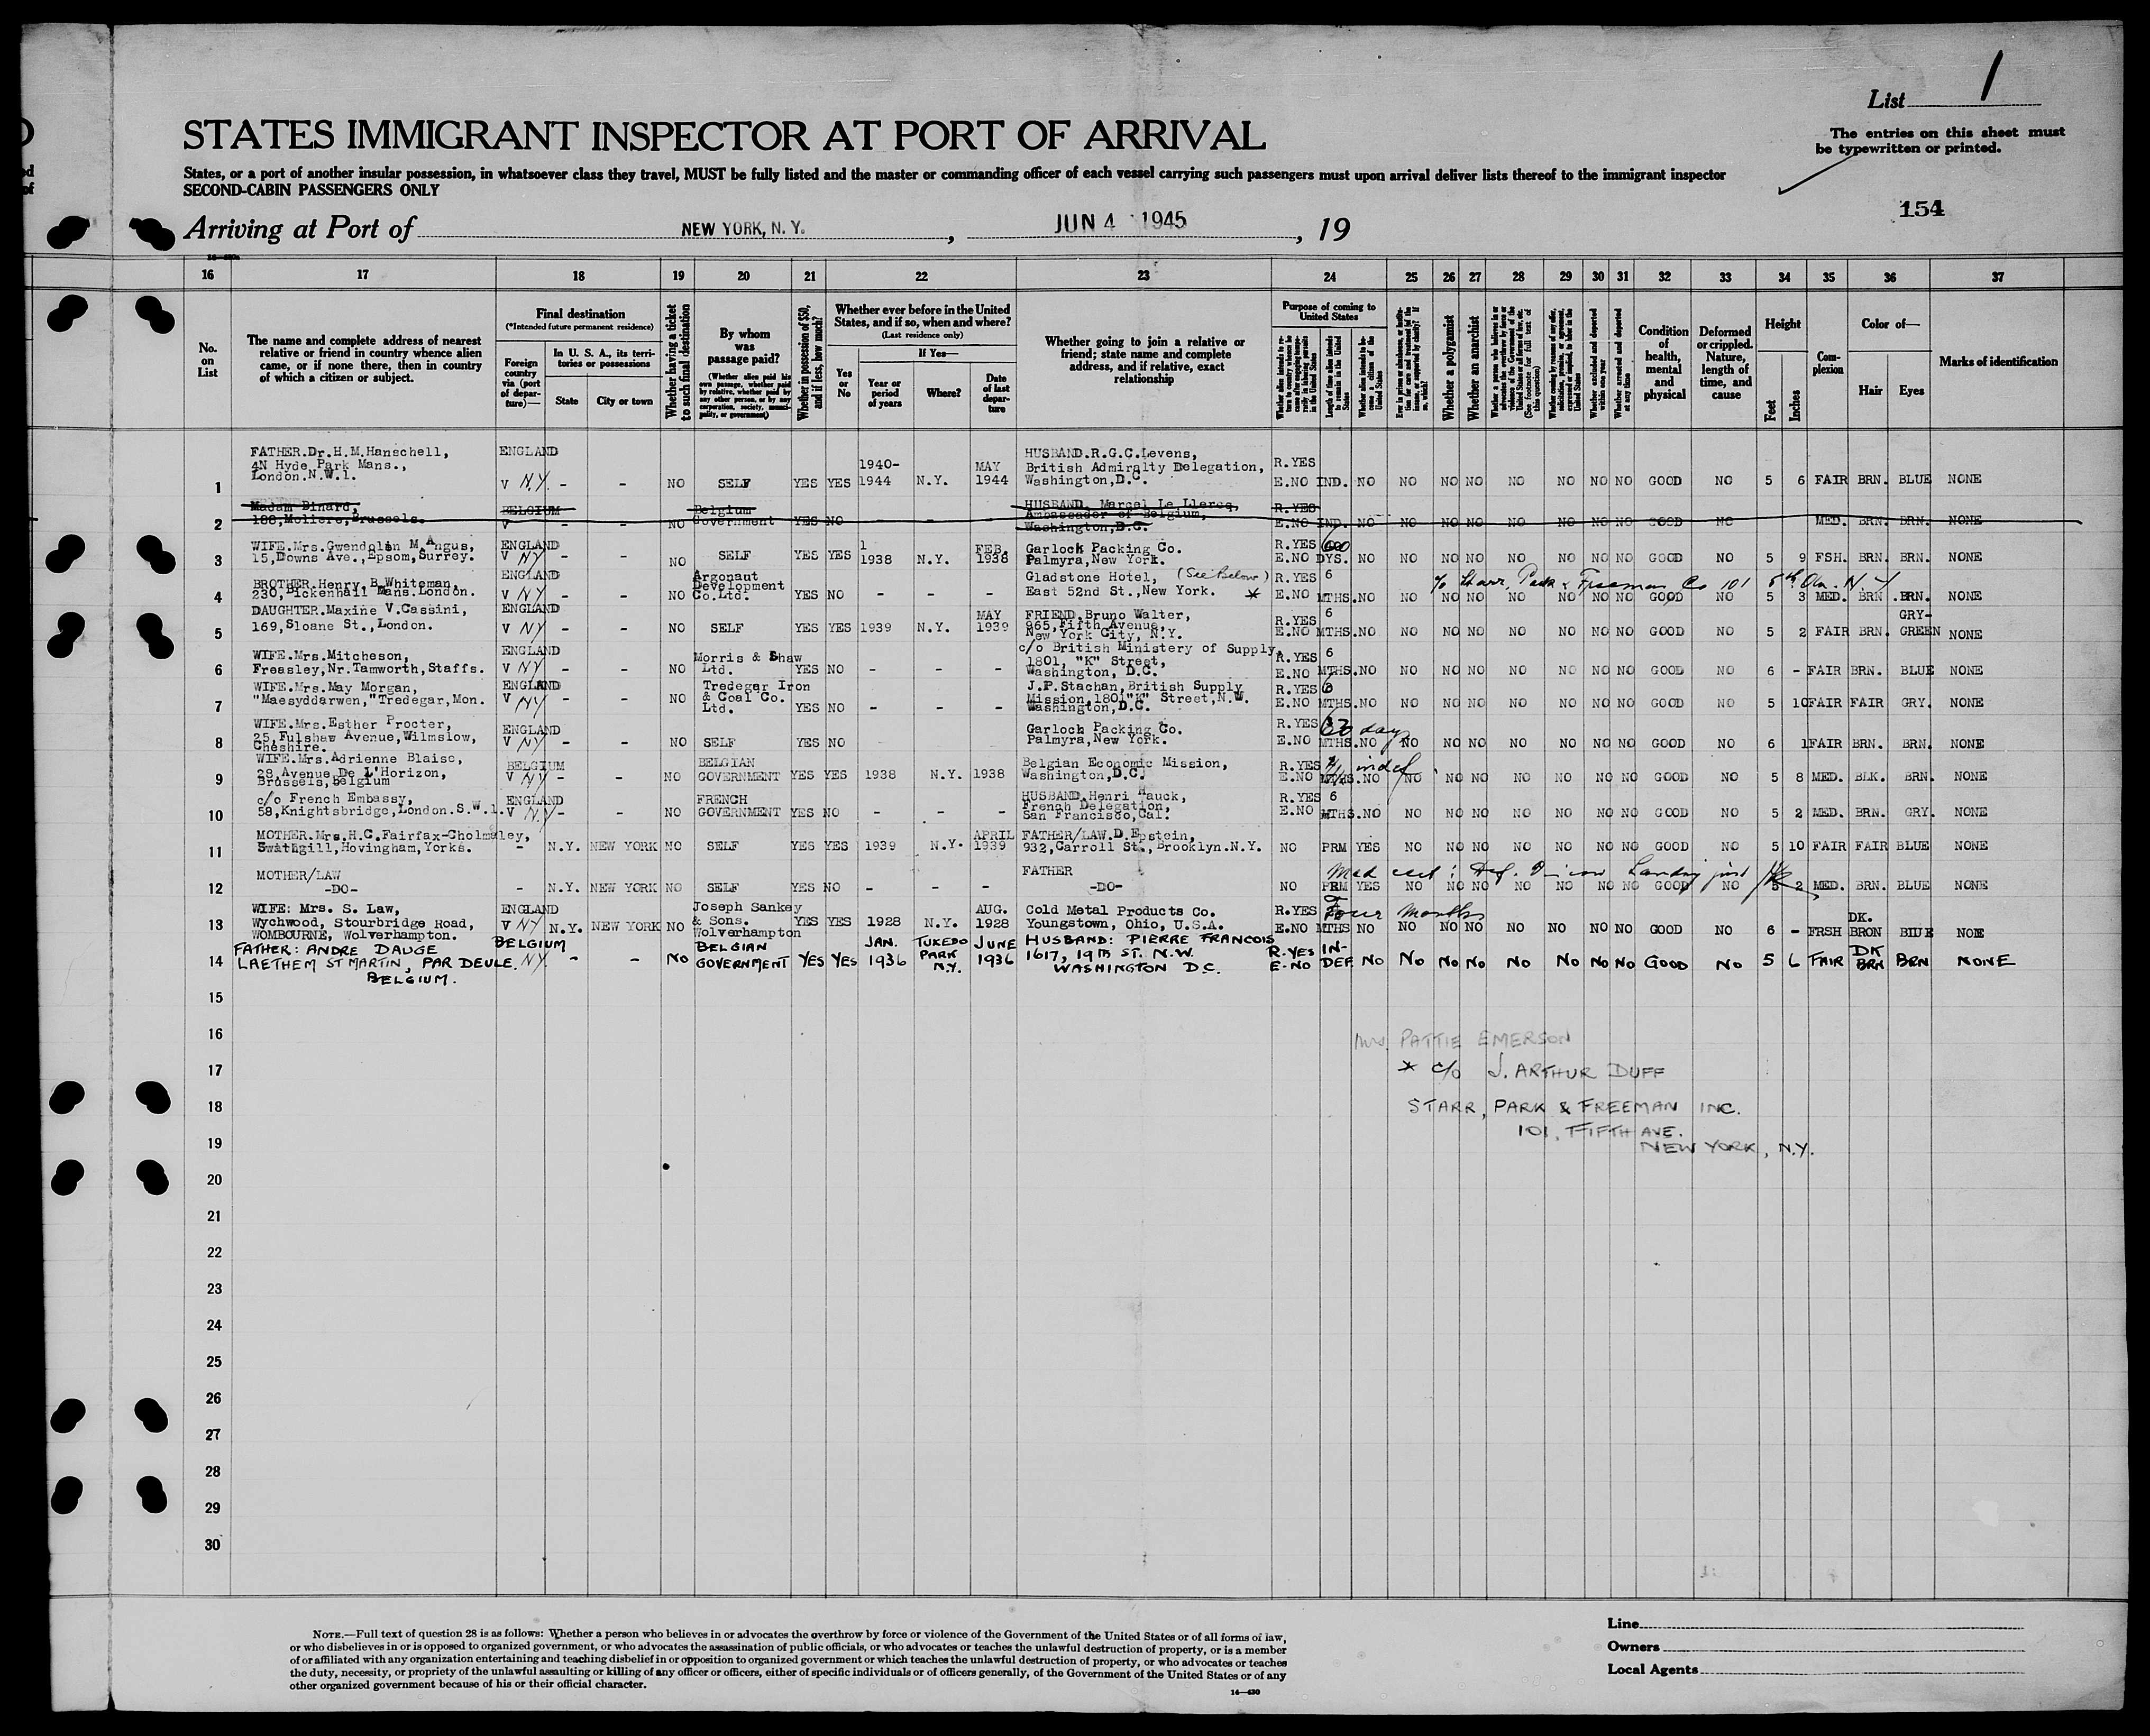 List 1
The entries on this sheet must
be typewritten or printed.
STATES IMMIGRANT INSPECTOR AT PORT OF ARRIVAL
States, or a port of another insular possession, in whatsoever class they travel, MUST be fully listed and the master or commanding officer of each vessel carrying such passengers must upon arrival deliver lists thereof to the immigrant inspector
SECOND-CABIN PASSENGERS ONLY
154
Arriving at Port of NEW YORK, N. Y., JUN 4 1945, 19
16 17 18 19 20 21 22 23 24 25 26 27 28 29 30 31 32 33 34 35 36 37
No. on List
The name and complete address of nearest
relative or friend in country whence alien
came, or if none there, then in country
of which a citizen or subject.
Final destination
(*Intended future permanent residence)
Foreign country via (port of departure)—
In U. S. A., its territories or possessions
State
City or town
Whether having a ticket to such final destination
By whom was passage paid?
(Whether alien paid his own passage, whether paid by relative, whether paid by any other person, or by any corporation, society, municipality, or government)
Whether in possession of $50, and if less, how much?
Whether ever before in the United
States, and if so, when and where?
(Last residence only)
Yes or No
If Yes—
Year or period of years
Where?
Date of last departure
Whether going to join a relative or
friend; state name and complete
address, and if relative, exact
relationship
Purpose of coming to United States
Length of time alien intends to remain in the United States
Whether a polygamist
Whether an anarchist
Whether excluded and deported within one year
Whether arrested and deported at any time
Condition of health, mental and physical
Deformed or crippled. Nature, length of time, and cause
Height
Feet
Inches
Complexion
Color of—
Hair
Eyes
Marks of identification
1 FATHER.Dr.H.M.Hanschell, ENGLAND 1940- MAY HUSBAND.R.G.C.Levens, R.YES
4N Hyde Park Mans., British Admiralty Delegation,
London.N.W.1. V N.Y. - - NO SELF YES YES 1944 N.Y. 1944 Washington,D.C. E.NO IND. NO NO NO NO NO NO NO NO GOOD NO 5 6 FAIR BRN. BLUE NONE
2 Madam Binard, BELGIUM Belgium HUSBAND. Marcel Le Llercq, R.YES
188,Moliere,Brussels. V - - NO Government YES NO - - - Ambassador of Belgium,
Washington,D.C. E.NO IND. NO NO NO NO NO NO NO NO GOOD NO MED. BRN. BRN. NONE
3 WIFE.Mrs.Gwendolin M Angus, ENGLAND 1 FEB. Garlock Packing Co. R.YES
15,Downs Ave.,Epsom,Surrey. V NY - - NO SELF YES YES 1938 N.Y. 1938 Palmyra,New York. E.NO DYS. NO NO NO NO NO NO NO NO GOOD NO 5 9 FSH. BRN. BRN. NONE
4 BROTHER.Henry B Whiteman, ENGLAND Argonaut Gladstone Hotel, (See Below) R.YES 6 c/o Starr, Park & Freeman Co 101 5th Ave. N.Y
230,Bickenhall Mans.London. V NY - - NO Development Co.Ltd. YES NO - - - East 52nd St.,New York. * E.NO MTHS. NO NO NO NO NO NO NO NO GOOD NO 5 3 MED. BRN. BRN. NONE
5 DAUGHTER.Maxine V.Cassini, ENGLAND MAY FRIEND,Bruno Walter, R.YES 6 GRY-
169,Sloane St.,London. V NY - - NO SELF YES YES 1939 N.Y. 1939 965,Fifth Avenue,
New York City, N.Y. E.NO MTHS. NO NO NO NO NO NO NO NO GOOD NO 5 2 FAIR BRN. GREEN NONE
6 WIFE.Mrs.Mitcheson, ENGLAND Morris & Shaw c/o British Ministery of Supply, R.YES 6
Freasley,Nr.Tamworth,Staffs. V NY - - NO Ltd. YES NO - - - 1801, "K" Street,
Washington, D.C. E.NO MTHS. NO NO NO NO NO NO NO NO GOOD NO 6 - FAIR BRN. BLUE NONE
7 WIFE.Mrs.May Morgan, ENGLAND Tredegar Iron J.P.Stachan,British Supply R.YES 6
"Maesyddarwen,"Tredegar,Mon. V NY - - NO & Coal Co. Ltd. YES NO - - - Mission,1801"K" Street,N.W.
Washington,D.C. E.NO MTHS. NO NO NO NO NO NO NO NO GOOD NO 5 10 FAIR FAIR GRY. NONE
8 WIFE.Mrs.Esther Procter, ENGLAND Garlock Packing Co. R.YES days
25,Fulshaw Avenue,Wilmslow,
Cheshire. V NY - - NO SELF YES NO Palmyra,New York. E.NO MTHS. NO NO NO NO NO NO NO NO GOOD NO 6 1 FAIR BRN. BRN. NONE
9 WIFE.Mrs.Adrienne Blaise, BELGIUM BELGIAN Belgian Economic Mission, R.YES indef
28,Avenue De L'Horizon,
Brussels,belgium V NY - - NO GOVERNMENT YES YES 1938 N.Y. 1938 Washington,D.C. E.NO MTHS. NO NO NO NO NO NO NO NO GOOD NO 5 8 MED. BLK. BRN. NONE
10 c/o French Embassy, ENGLAND FRENCH HUSBAND.Henri Hauck, R.YES 6
58,Knightsbridge,London.S.W.1. V N.Y. - - NO GOVERNMENT YES NO - - - French Delegation,
San Francisco,Cal. E.NO MTHS. NO NO NO NO NO NO NO NO GOOD NO 5 2 MED. BRN. GRY. NONE
11 MOTHER.Mrs.H.C.Fairfax-Cholmeley, APRIL FATHER/LAW.D.Epstein,
Swathgill,Hovingham,Yorks. - N.Y. NEW YORK NO SELF YES YES 1939 N.Y. 1939 932,Carroll St.,Brooklyn.N.Y. NO PRM YES NO NO NO NO NO NO NO GOOD NO 5 10 FAIR FAIR BLUE NONE
12 MOTHER/LAW FATHER Med cert :
-DO- - N.Y. NEW YORK NO SELF YES NO - - - -DO- NO PRM YES NO NO NO NO NO NO NO GOOD NO 5 2 MED. BRN. BLUE NONE
13 WIFE: Mrs. S. Law, ENGLAND Joseph Sankey AUG. Cold Metal Products Co. R.YES Four Months DK.
Wychwood, Stourbridge Road, V NY N.Y. NEW YORK NO & Sons. YES YES 1928 N.Y. 1928 Youngstown, Ohio, U.S.A. E.NO MTHS NO NO NO NO NO NO NO NO GOOD NO 6 - FRSH BRON BLUE NONE
WOMBOURNE, Wolverhampton. Wolverhampton
14 FATHER: ANDRE DAUGE BELGIUM BELGIAN JAN. TUXEDO JUNE HUSBAND: PIERRE FRANCOIS R.YES IN- DK
LAETHEM ST MARTIN, PAR DEULE. N.Y. - - NO GOVERNMENT YES YES 1936 PARK N.Y. 1936 1617, 19TH ST. N.W. E-NO DEF. NO NO NO NO NO NO NO NO GOOD NO 5 6 FAIR BRN BRN NONE
BELGIUM. WASHINGTON D.C.
15
16 Mrs. PATTIE EMERSON
17 * c/o J. ARTHUR DUFF
18 STARR, PARK & FREEMAN INC.
19 101, FIFTH AVE.
NEW YORK, N.Y.
20
21
22
23
24
25
26
27
28
29
30
NOTE.—Full text of question 28 is as follows: Whether a person who believes in or advocates the overthrow by force or violence of the Government of the United States or of all forms of law,
or who disbelieves in or is opposed to organized government, or who advocates the assassination of public officials, or who advocates or teaches the unlawful destruction of property, or is a member
of or affiliated with any organization entertaining and teaching disbelief in or opposition to organized government or which teaches the unlawful destruction of property, or who advocates or teaches
the duty, necessity, or propriety of the unlawful assaulting or killing of any officer or officers, either of specific individuals or of officers generally, of the Government of the United States or of any
other organized government because of his or their official character.
14—430
Line
Owners
Local Agents